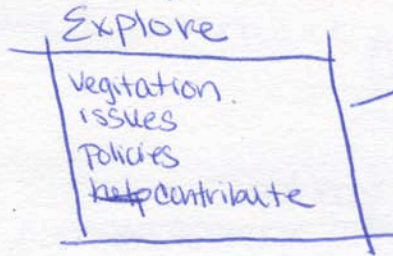 Explore
vegitation.
issues
policies
help contribute